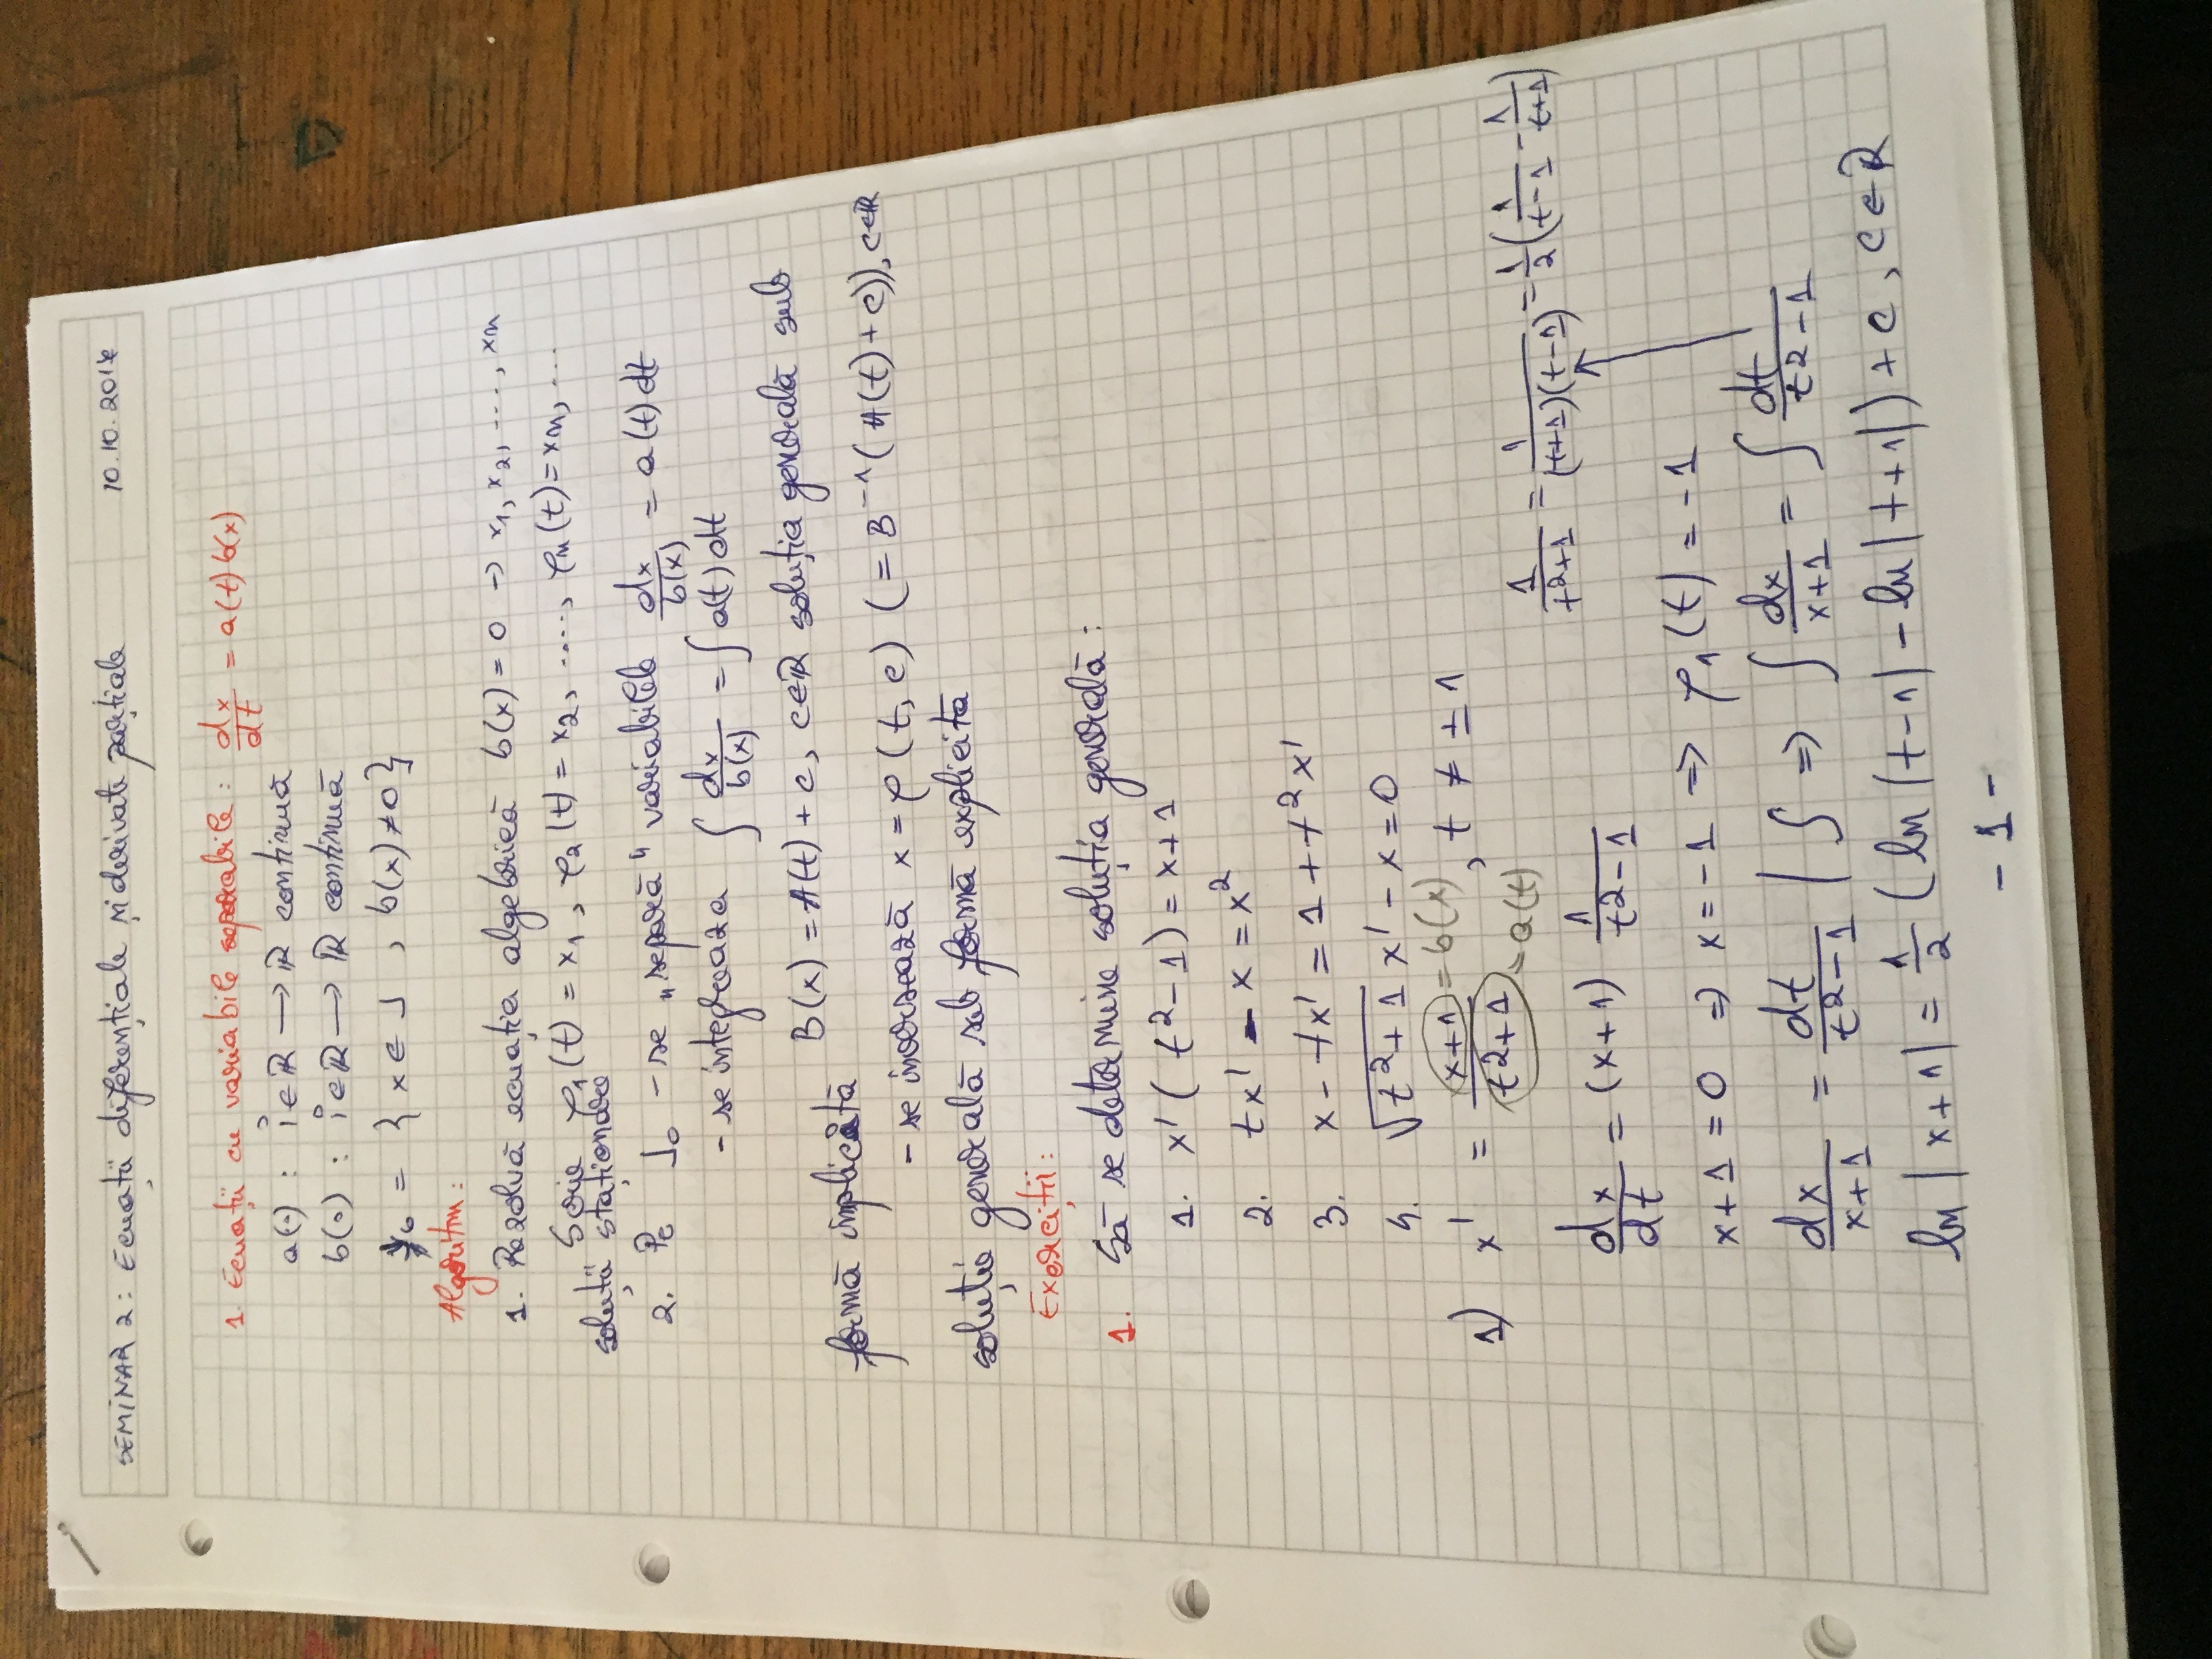 SEMINAR 2: Ecuații diferențiale și derivate parțiale 10.10.2017
1. Ecuații cu variabile separabile: dx/dt = a(t) b(x)
a(·) : i∈ℝ → ℝ continuă
b(·) : i∈ℝ → ℝ continuă
J₀ = { x ∈ J , b(x) ≠ 0}
Algoritm:
1. Rezolvă ecuația algebrică b(x) = 0 → x₁, x₂, ...., xn
Scrie φ₁(t) = x₁, φ₂(t) = x₂, ....., φn(t) = xn, ...
soluții staționare
2. Pe J₀ - se „separă" variabilele dx/b(x) = a(t) dt
- se integreaza ∫ dx/b(x) = ∫ a(t) dt
B(x) = A(t) + c, c∈ℝ soluția generală sub
formă implicită
- se inversează x = φ(t, c) (= B⁻¹(A(t) + c)), c∈ℝ
soluție generală sub formă explicita
Exerciții:
1. Să se determine soluția generală:
1. x' ( t² - 1) = x + 1
2. tx' - x = x²
3. x - tx' = 1 + t²x'
4. √(t² + 1) x' - x = 0
1) x' = (x+1)/(t²+1) , t ≠ ± 1
= b(x)
= a(t)
1/(t²+1) = 1/((t+1)(t-1)) = 1/2 (1/(t-1) - 1/(t+1))
dx/dt = (x+1) 1/(t²-1)
x + 1 = 0 ⇒ x = -1 ⇒ φ₁(t) = -1
dx/(x+1) = dt/(t²-1) | ∫ ⇒ ∫ dx/(x+1) = ∫ dt/(t²-1)
ln |x+1| = 1/2 (ln |t-1| - ln |t+1|) + c, c∈ℝ
- 1 -